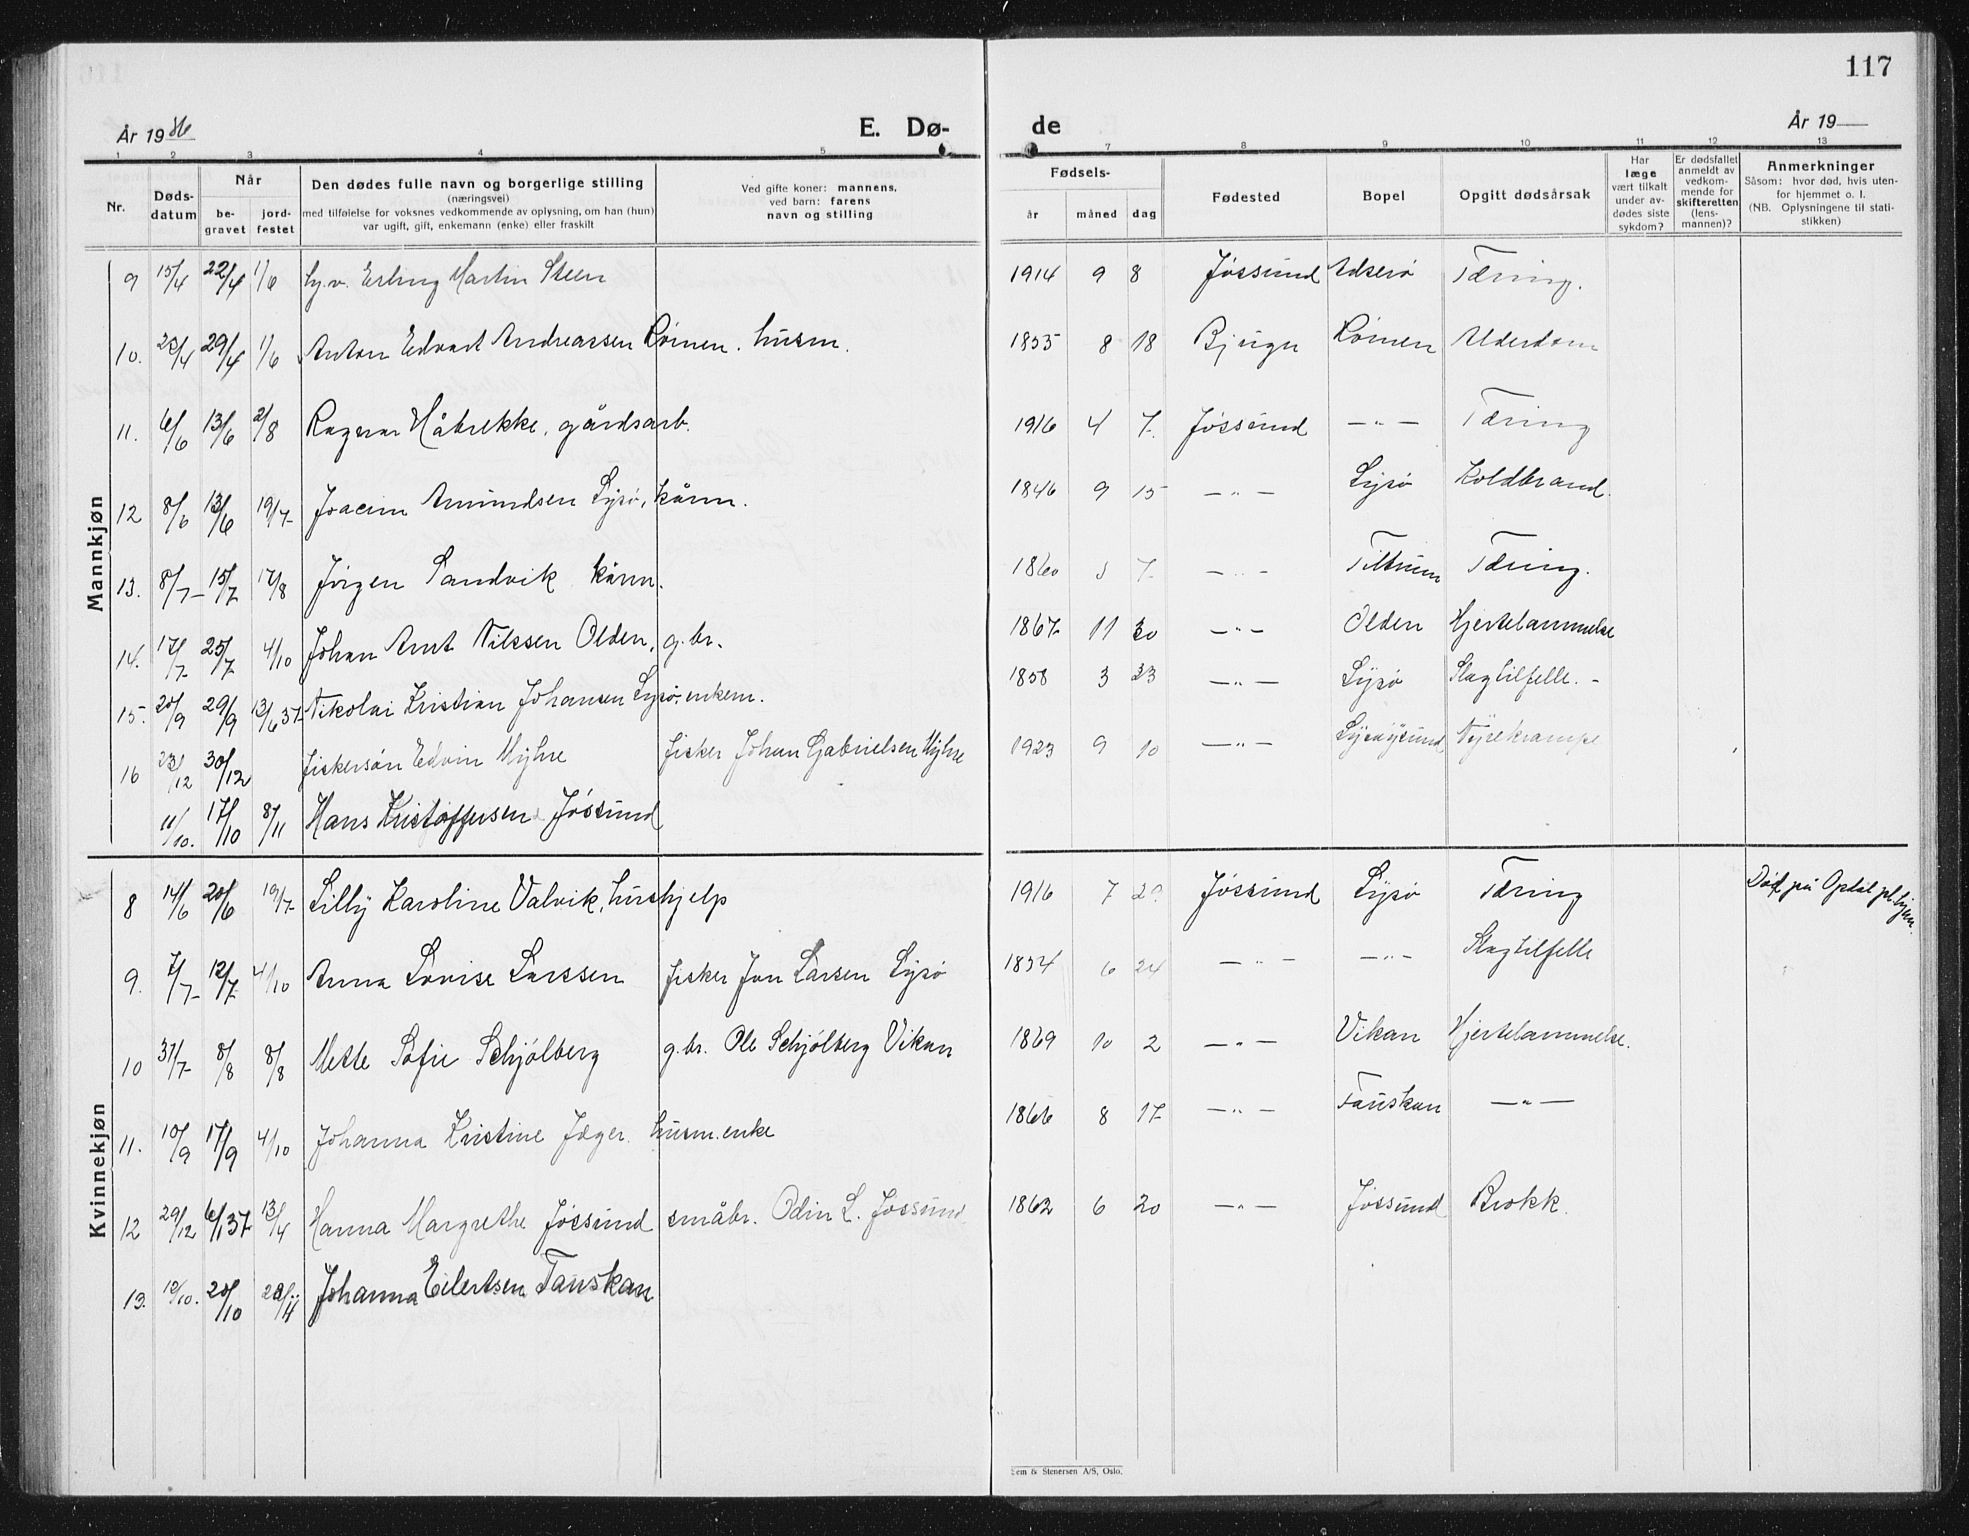 117
År 1936
E. Dø-
de
År 19
1 2 3 4 5 7 8 9 10 11 12 13
Nr.
Døds-
datum
Når
be-
gravet
jord-
festet
Den dødes fulle navn og borgerlige stilling
(næringsvei)
med tilføielse for voksnes vedkommende av oplysning, om han (hun)
var ugift, gift, enkemann (enke) eller fraskilt
Ved gifte koner: mannens,
ved barn: farens
navn og stilling
Fødsels-
år måned dag
Fødested
Bopel
Opgitt dødsårsak
Har
læge
vært tilkalt
under av-
dødes siste
sykdom?
Er dødsfallet
anmeldt av
vedkom-
mende for
skifteretten
(lens-
mannen)?
Anmerkninger
Såsom: hvor død, hvis uten-
for hjemmet o. l.
(NB. Oplysningene til stati-
stikken)
Mannkjøn
9 15/4 22/4 1/6 Erling Martin Steen 1914 9 8 Jøssund Tæring.
10. 22/4 29/4 1/6 Anton Edvart Andreassen Rømen. husm. 1855 8 18 Bjugn Rømen Alderdom
11. 6/6 13/6 2/8 Ragnar Håbrekke, gårdsarb. 1916 4 7. Jøssund —"— Tæring
12 8/6 13/6 19/7 Joacim Amundsen Lysø, kårm. 1846 9 15 —"— Lysø Koldbrand.
13. 8/7 15/7 17/8 Jörgen Sandvik kårm. 1860 7 —"— Tiltrum Tæring.
14. 17/7 25/7 4/10 Johan Arnt Nilssen Olden, g.br. 1867 11 30 —"— Olden Hjertelammelse
15. 20/9 29/9 13/6 37 Nikolai Kristian Johansen Lysø, enkem. 1858 3 23 —"— Lysø Slagtilfelle. -
16 23/12 30/12 fiskersøn Edvin Myhre fisker Johan Gabrielsen Myhre 1923 9 10 —"— Lysøysund Nyrekrampe
11/10. 17/10 8/11 Hans Kristoffersen Jøssund
Kvinnekjøn
8 14/6 20/6 19/7 Lilly Karoline Valvik, hushjelp 1916 7 Jøssund Lysø Tæring Død på Opdal pl.hjem.
9. 7/7 12/7 4/10 Anna Lovise Larssen fisker Jon Larsen Lysø 1854 6 24 —"— —"— Slagtilfelle
10 31/7 8/8 8/8 Mette Sofie Schjölberg g.br. Ole Schjölberg Vikan 1869 10 2 —"— Vikan Hjertelammelse.
11. 10/9 17/9 4/10 Johanna Kristine Jæger. husm.enke 1866 8 17 —"— Tauskan —"—
12 29/12 6/1 37 13/4 Hanna Margrethe Jössund småbr. Odin L. Jøssund 1862 6 20 —"— Jøssund Brokk.
13. 12/10. 20/10 Johanna Eilertsen Tauskan
Sem & Stenersen A/S, Oslo.